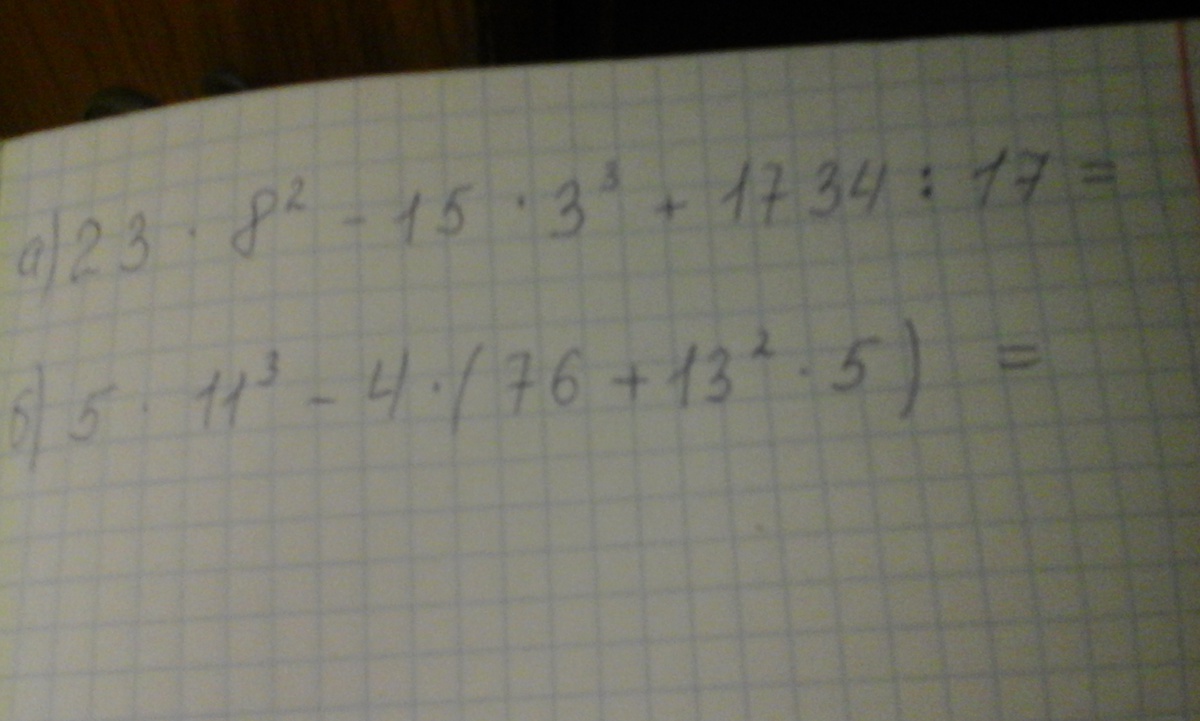 а) 23 · 8² - 15 · 3³ + 1734 : 17 =
б) 5 · 11³ - 4 · (76 + 13² · 5) =